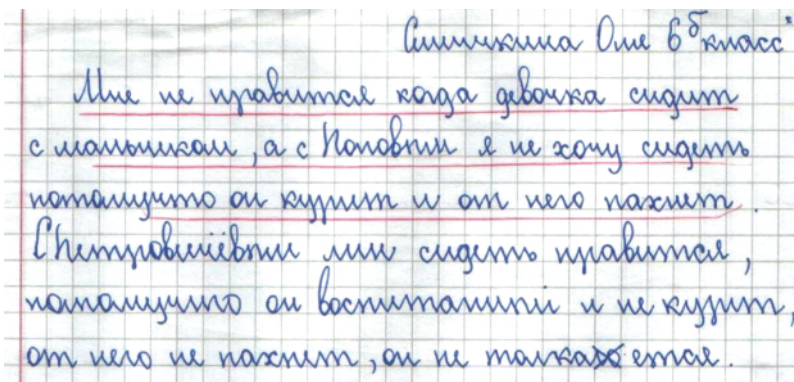 Синичкина Оля 6б класс
Мне не нравится когда девочка сидит
с мальчиком, а с Поповым я не хочу сидеть
потомучто он курит и от него пахнет.
С Петровичёвым мне сидеть нравится,
потомучто он воспитаный и не курит,
от него не пахнет, он не толкается.